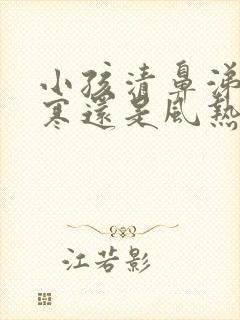 小孩清鼻涕
寒還是風熱
江若影